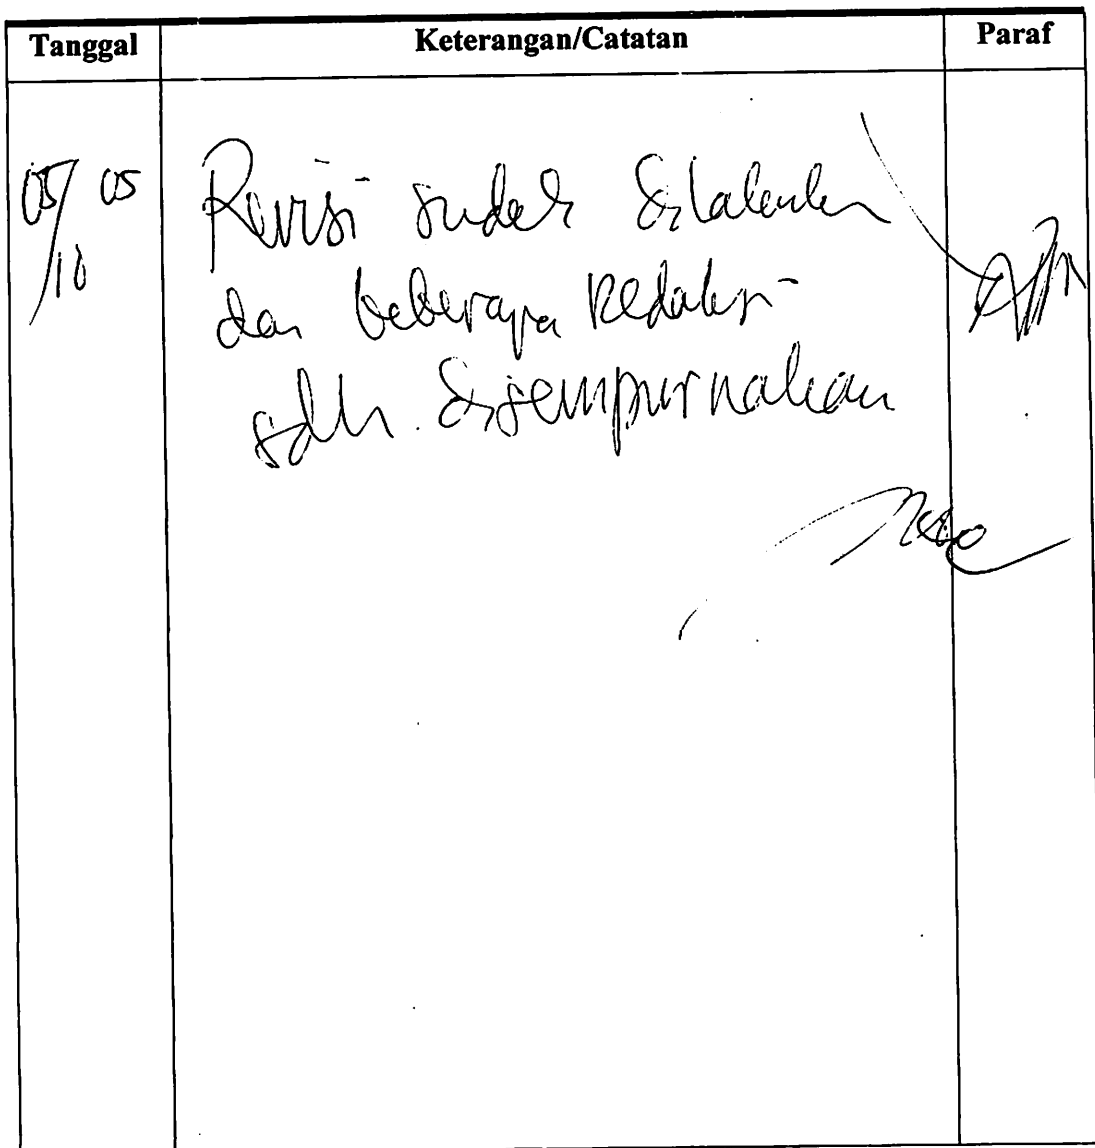 Tanggal Keterangan/Catatan Paraf
05/10 05 Revisi sudah dilakukan
dan beberapa Redaksi
sdh. disempurnakan